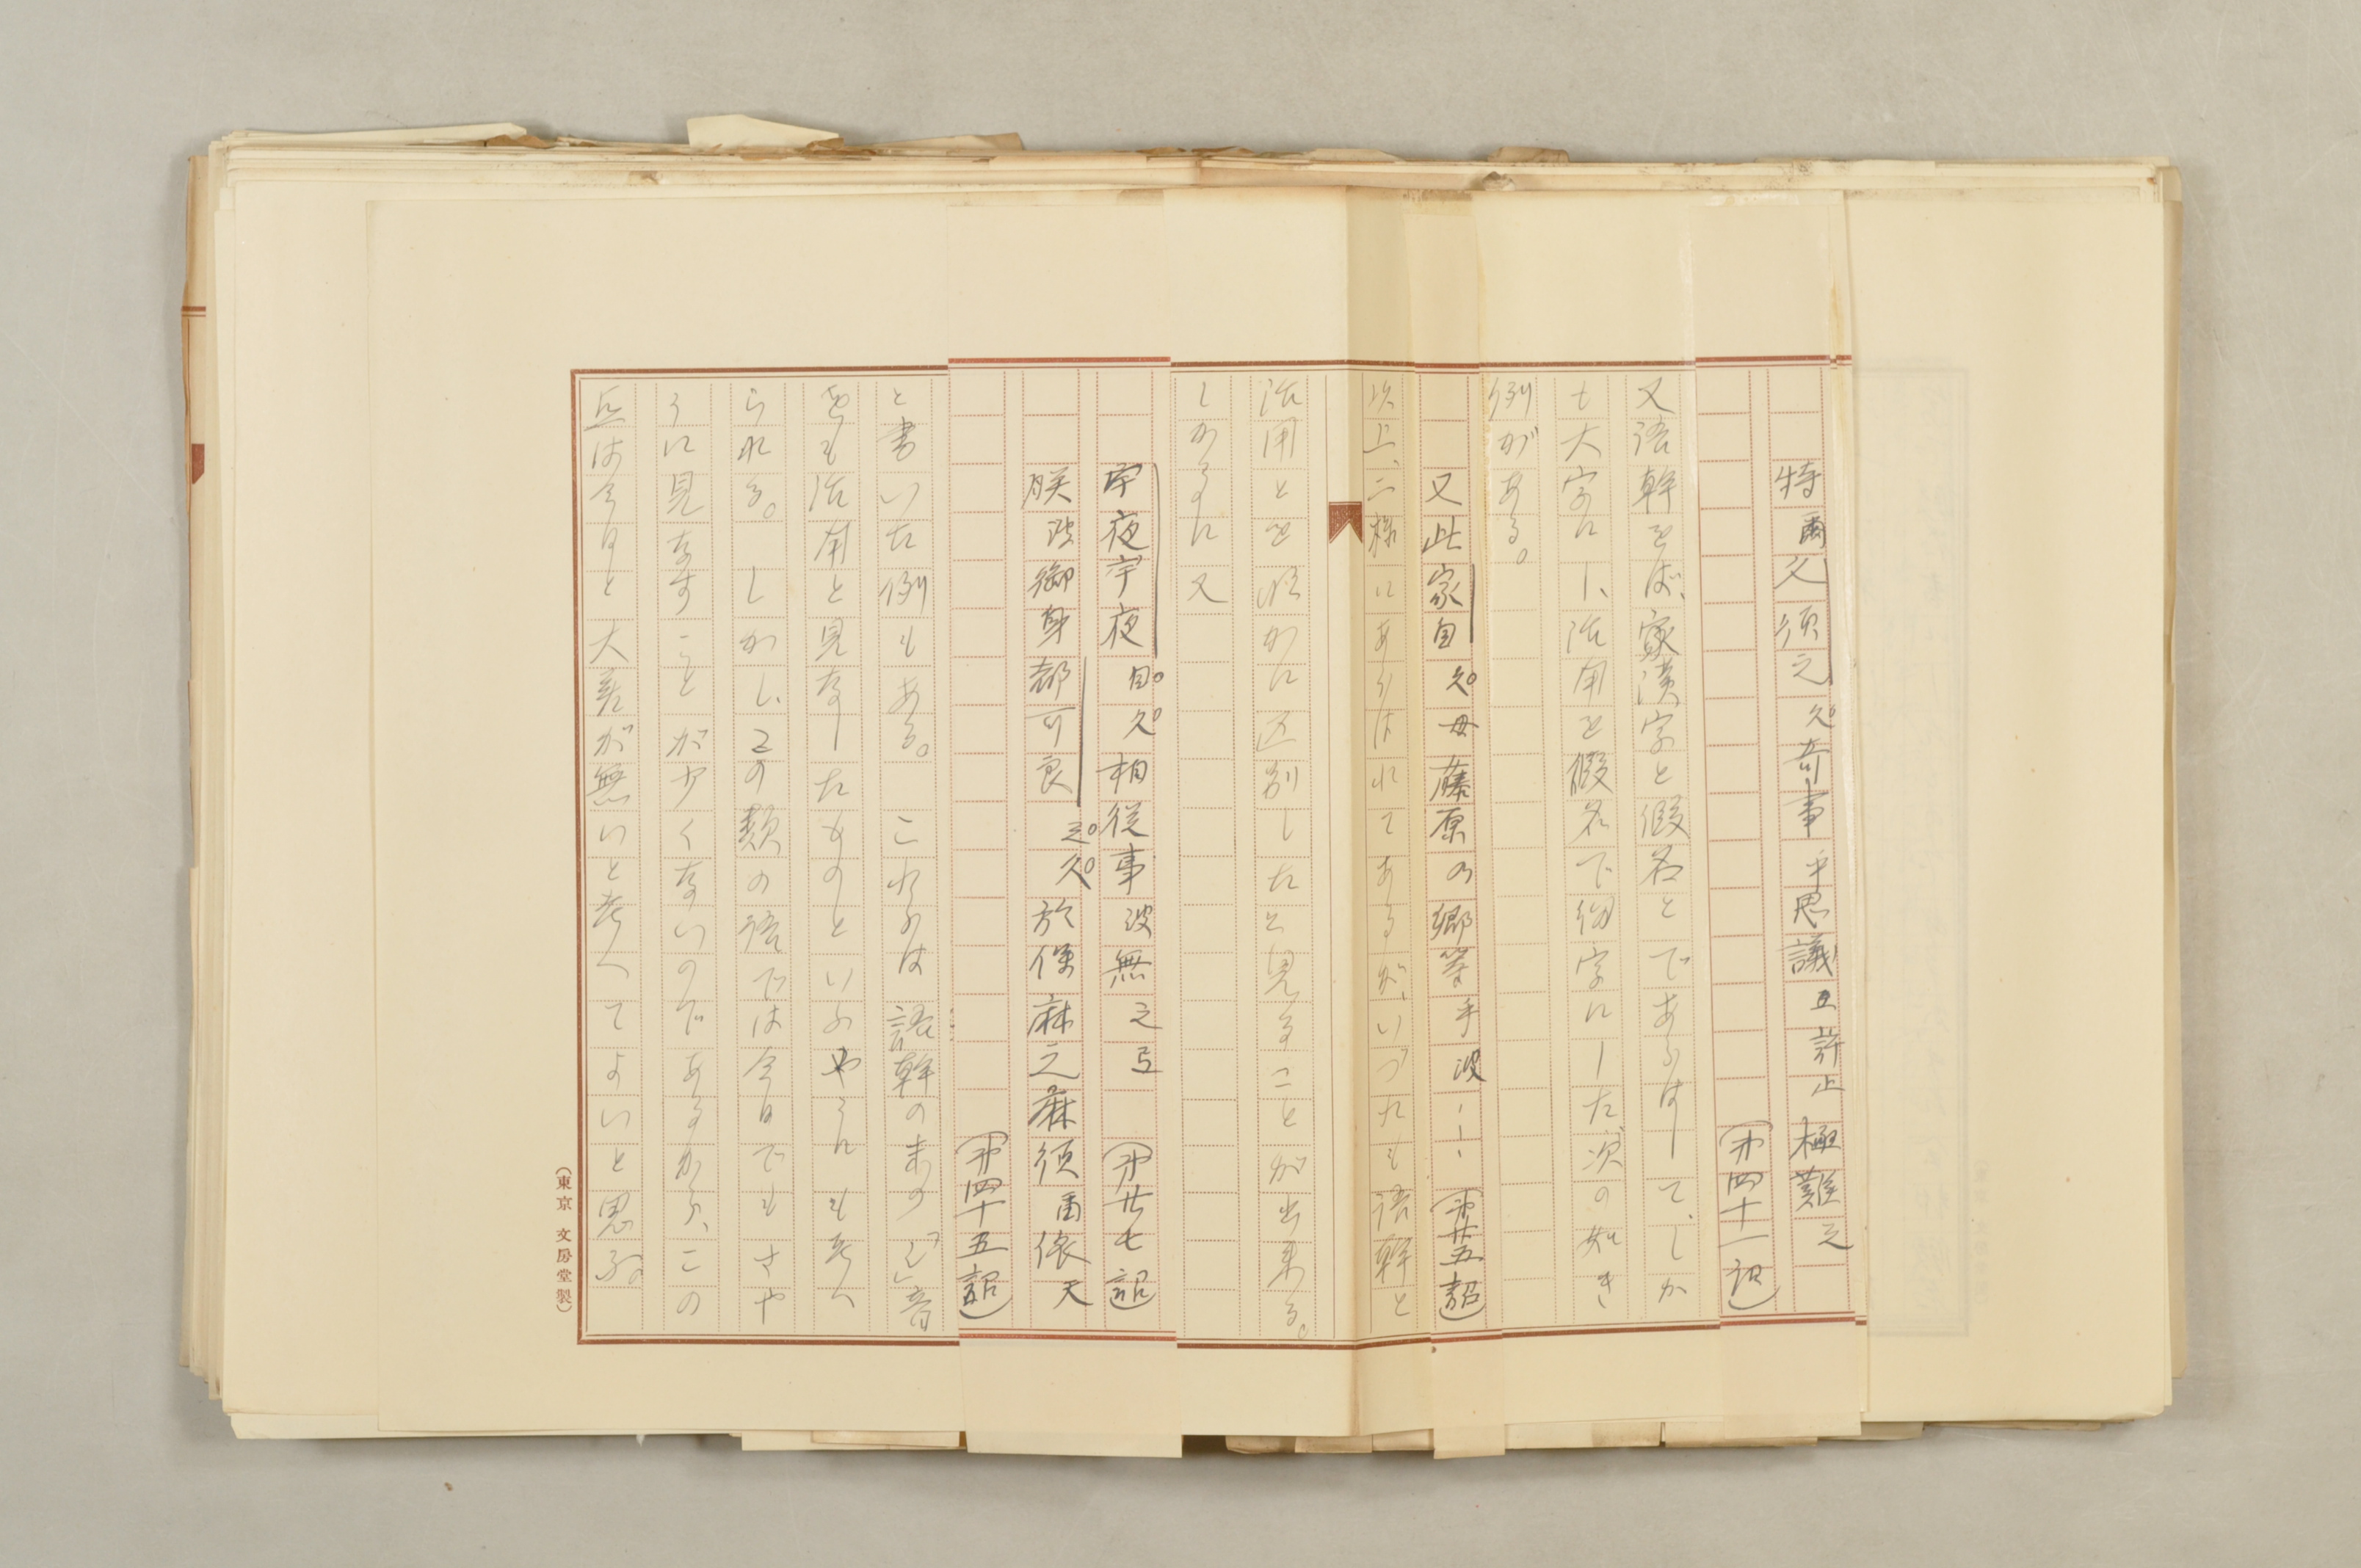 特爾久須之久奇事乎思議
極難之
(第四十一詔)
又語幹をば、漢字と假名とであらはして、しか
も大字にし、活用を假名で細字にした次の如き
例がある。
又此家自久母藤原の郷等手波――(第廿五詔)
以上、二樣にあらはれてあるが、いづれも語幹と
活用とを明かに区別したと見ることが出来る。
しかるに又
宇夜宇夜自久相従事波無之弖(第廿七詔)
朕波御身都可良之久於保麻之麻須爾依天
(第四十五詔)
と書いた例もある。これらは語幹の末の「シ」音
をも活用と見なしたものといふやうにも考へ
られる。しかし、この類の語では今日でもさや
うに見なすことが少くないのであるから、この
点は今日と大差が無いと考へてよいと思ふ。
(東京 文房堂製)